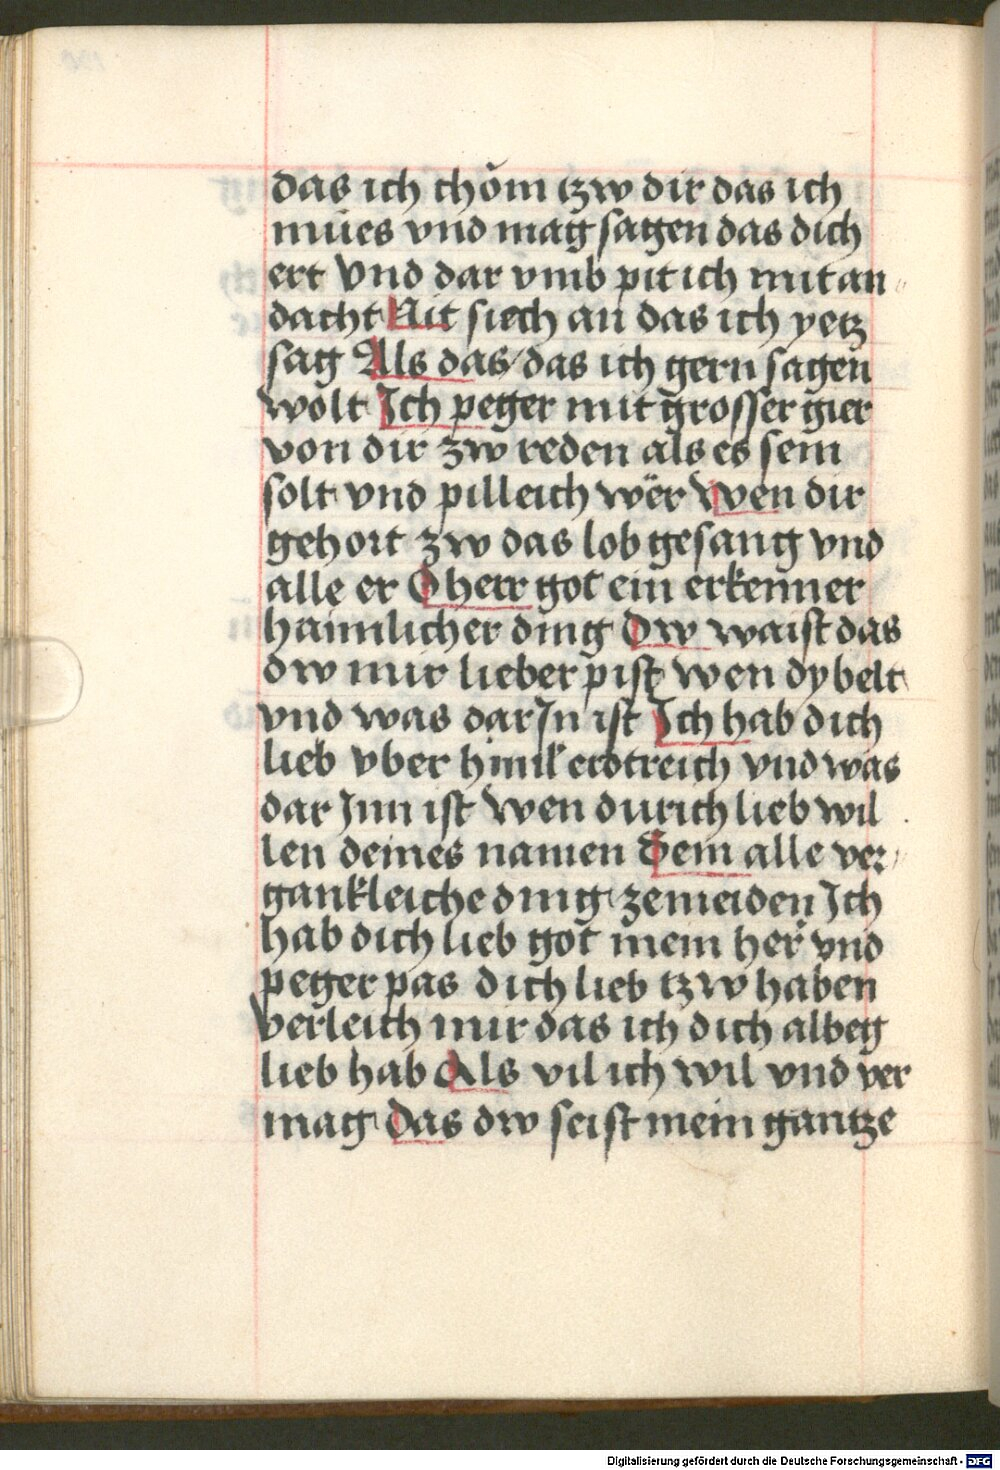 das ich chöm tzw dir das ich
mües vnd mag sagen das dich
ert Vnd dar vmb pit ich mit an
dacht Nit siech an das ich yetz
sag Als das das ich gern sagen
wolt Ich peger mit grosser gier
von dir zw reden als es sein
solt vnd pilleich wër Wen dir
gehort zw das lob gesang vnd
alle er O herr got ein erkenner
haimlicher ding Dw waist das
dw mir lieber pist wen dy belt
vnd was dar Jn ist Ich hab dich
lieb vber himl erdtreich vnd was
dar Jnn ist Wen durich lieb wil
len deines namen Sein alle ver
gankleiche ding ze meiden Ich
hab dich lieb got mein her vnd
peger pas dich lieb tzw haben
Verleich mir das ich dich albeg
lieb hab Als vil ich wil vnd ver
mag Das dw seist mein gantze
Digitalisierung gefördert durch die Deutsche Forschungsgemeinschaft - DFG